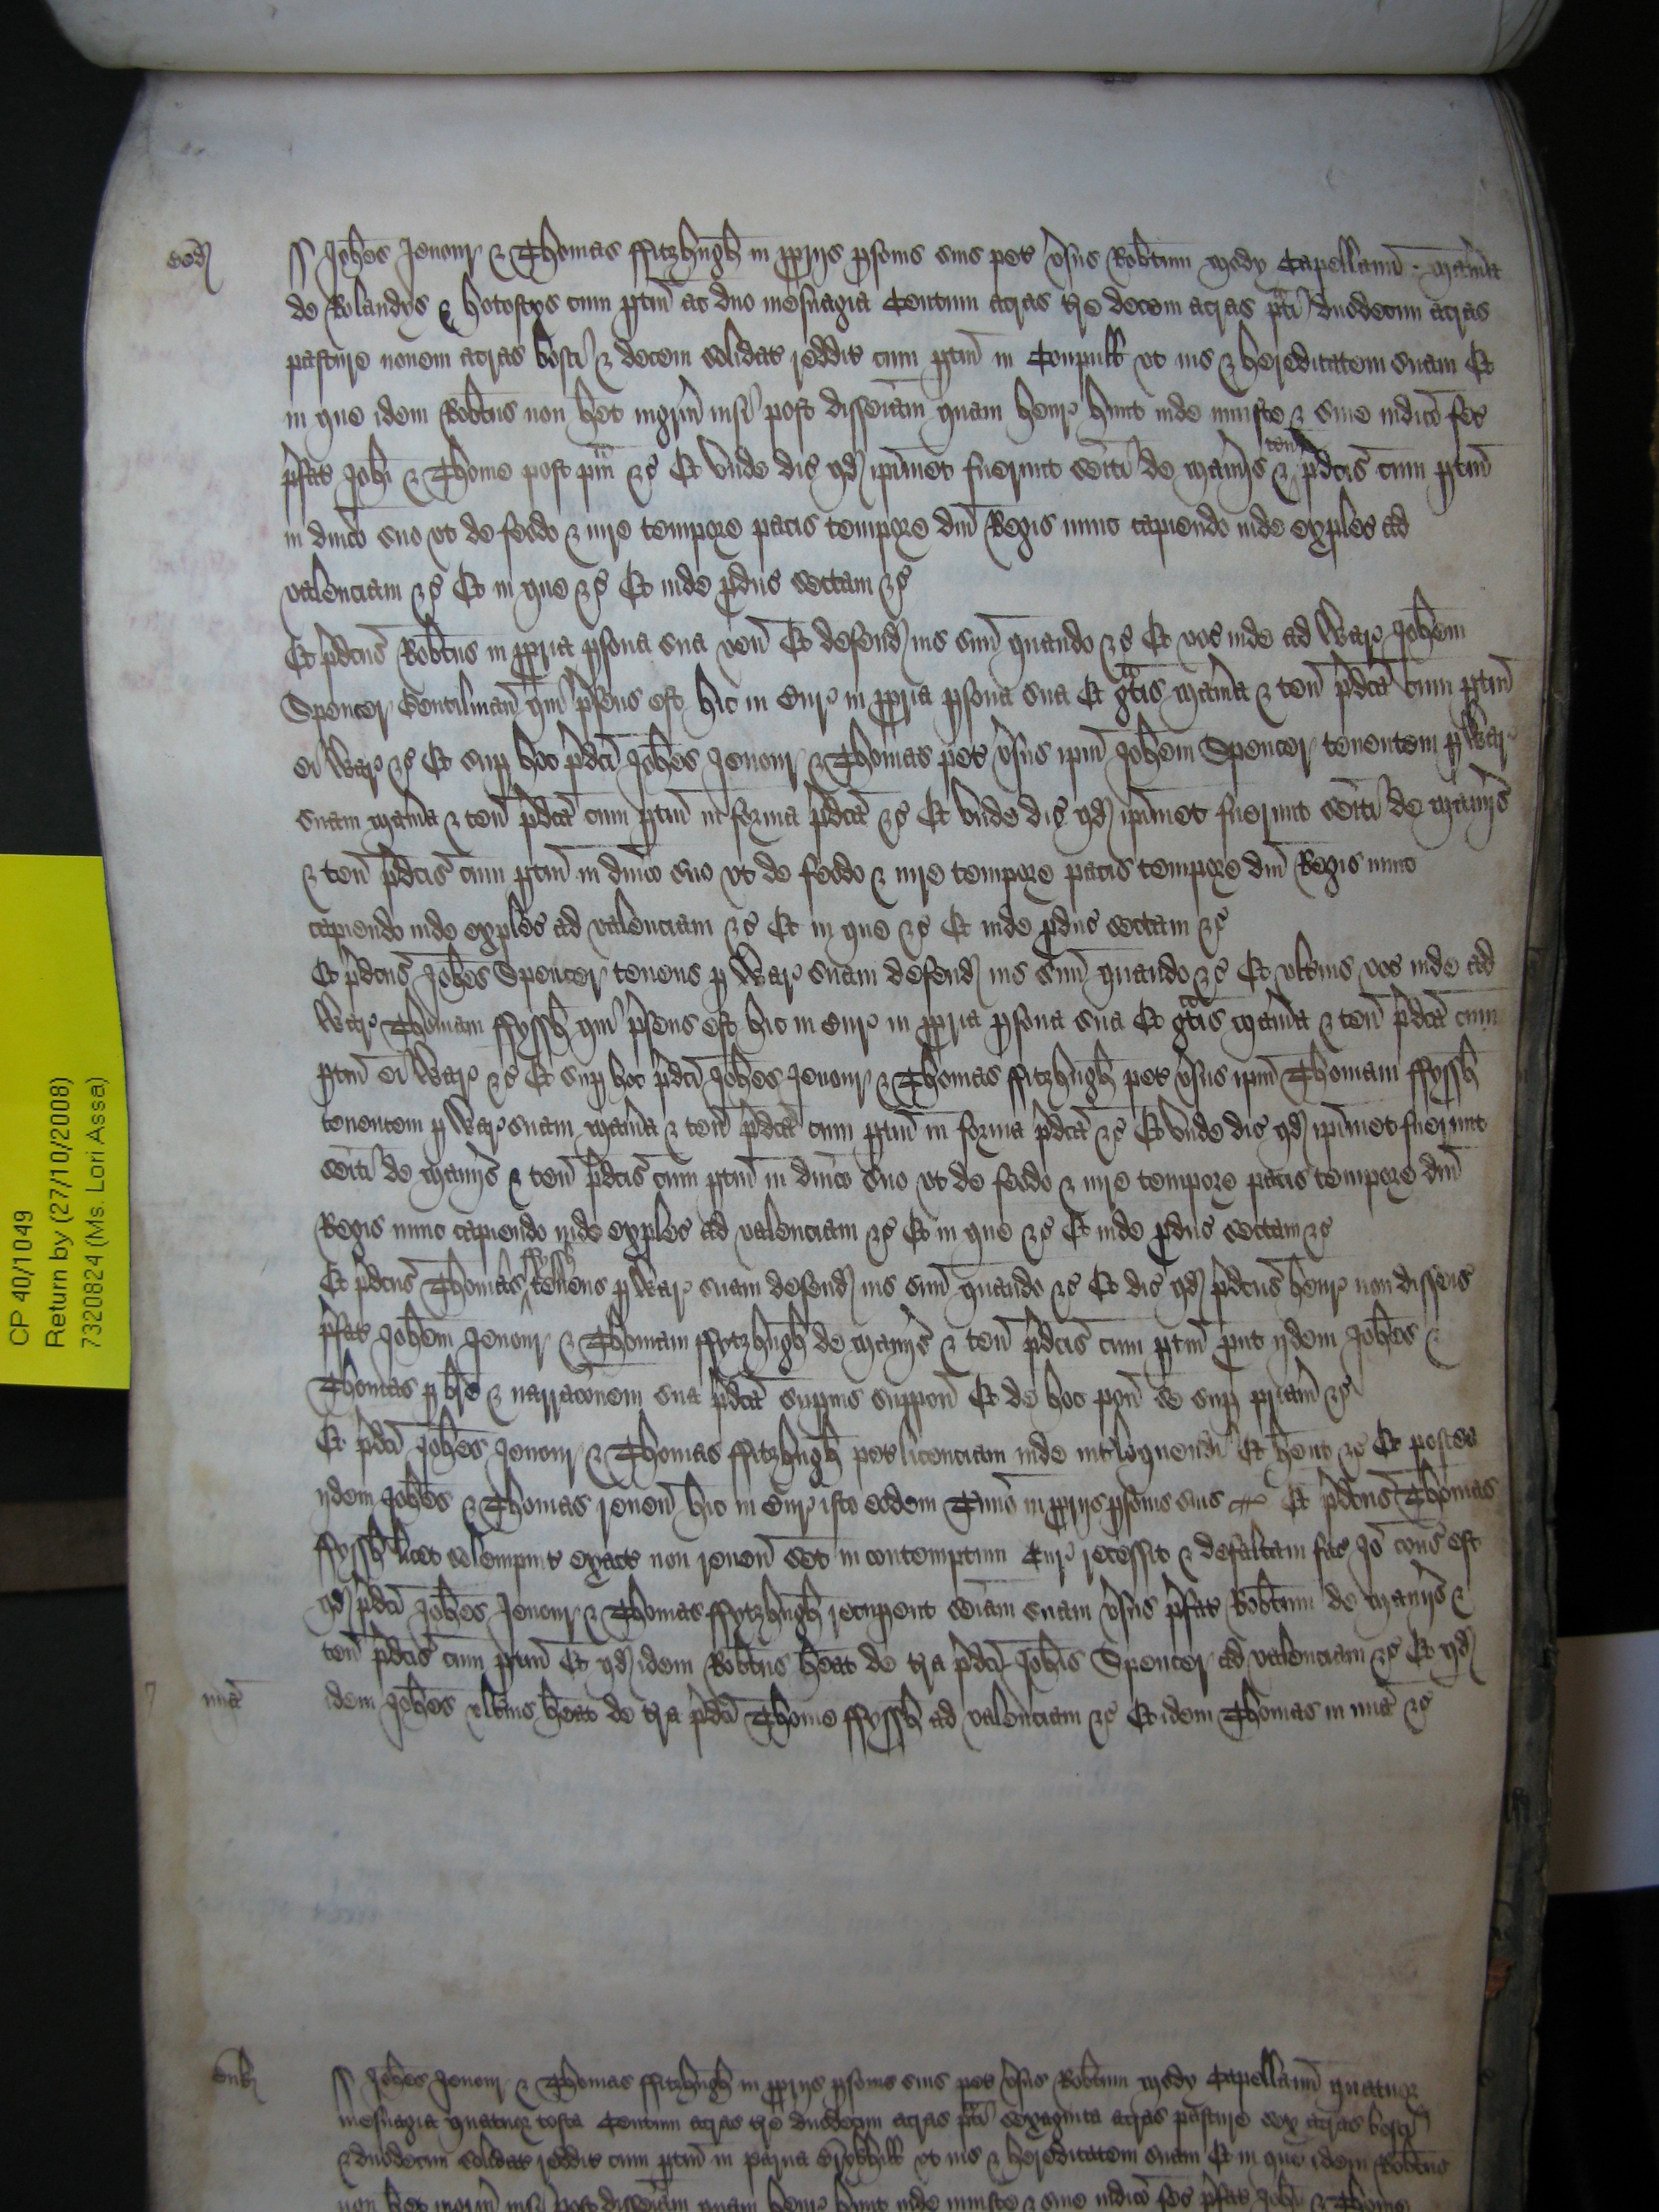 CP 40/1049
Return by (27/10/2008)
7320824 (Ms. Lori Assa)
eod
ss Johes Jenour & Thomas ffitzhugh in pprijs psonis suis pet vsus Robtum Mody Capellanu Maneia
de Rolandys & hotoftys cum ptin ac duo mesuagia Centum acras tre decem acras pti duodecim acras
pasture novem acras bosci & decem solidat reddit cum ptin in ut jus & hereditatem suam Et
in que idem Robtus non het ingrm nisi post disseiam quam henr hunt inde injuste & sine judico fec
pfat Johi & Thome post pm &c Et unde dic qd ipimet fuerunt seiti de Manijs & ten pdcis cum ptin
in dnico suo ut de feodo & jure tempore pacis tempore dni Regis nunc capiendo inde exples ad
valenciam &c Et in que &c Et inde pduc sectam &c
Et pdcus Robtus in ppria psona sua ven Et defend jus suu quando &c Et voc inde ad War Johem
Spencer Gentilman qui psens est hic in Cur in ppria psona sua Et gtis Mania & ten pdca cum ptin
ei War &c Et sup hoc pdci Johes Jenour & Thomas pet vsus ipm Johem Spencer tenentem p War
suam Mania & ten pdca cum ptin in forma pdca &c Et unde dic qd ipimet fuerunt seiti de Manijs
& ten pdcis cum ptin in dnico suo ut de feodo & jure tempore pacis tempore dni Regis nunc
capiendo inde exples ad valenciam &c Et in que &c Et inde pduc sectam &c
Et pdcus Johes Spencer tenens p War suam defend jus suu quando &c Et ultius voc inde ad
War Thomam ffyssh qui psens est hic in Cur in ppria psona sua Et gtis Mania & ten pdca cum
ptin ei War &c Et sup hoc pdci Johes Jenour & Thomas ffitzhugh pet vsus ipm Thomam ffyssh
tenentem p War suam Mania & ten pdca cum ptin in forma pdca &c Et unde dic qd ipimet fuerunt
seiti de Manijs & ten pdcis cum ptin in dnico suo ut de feodo & jure tempore pacis tempore dni
Regis nunc capiendo inde exples ad valenciam &c Et in que &c Et inde pduc sectam &c
Et pdcus Thomas ffyssh tenens p War suam defend jus suu quando &c Et dic qd pdcus henr non disseis
pfat Johem Jenour & Thomam ffytzhugh de Manijs & ten pdcis cum ptin put ijdem Johes &
Thomas p bre & narracoem sua pdca supius suppon Et de hoc pon se sup priam &c
Et pdci Johes Jenour & Thomas ffitzhugh pet licenciam inde intloquendi Et hent &c Et postea
ijdem Johes & Thomas reven hic in Cur isto eodem Tmio in pprijs psonis suis Et pdcus Thomas
ffyssh licet solempnit exact non reven set in contemptum Cur recessit & defaltam fac Jo cons est
qd pdci Johes Jenour & Thomas ffytzhugh recupent seiam suam vsus pfat Robtum de Manijs &
ten pdcis cum ptin Et qd idem Robtus heat de tra pdci Johis Spencer ad valenciam &c Et qd
mia
idem Johes ultius heat de tra pdci Thome ffyssh ad valenciam &c Et idem Thomas in mia &c
ss Johes Jenour & Thomas ffitzhugh in pprijs psonis suis pet vsus Robtum Mody Capellanu quatuor
mesuagia quatuor tofta Centum acras tre duodecim acras pti sexaginta acras pasture sex acras bosci
& duodecim solidat reddit cum ptin in parva ut jus & hereditatem suam Et in que idem Robtus
non het ingrm nisi post disseiam quam henr hunt inde injuste & sine judico fec pfat Johi & Thome